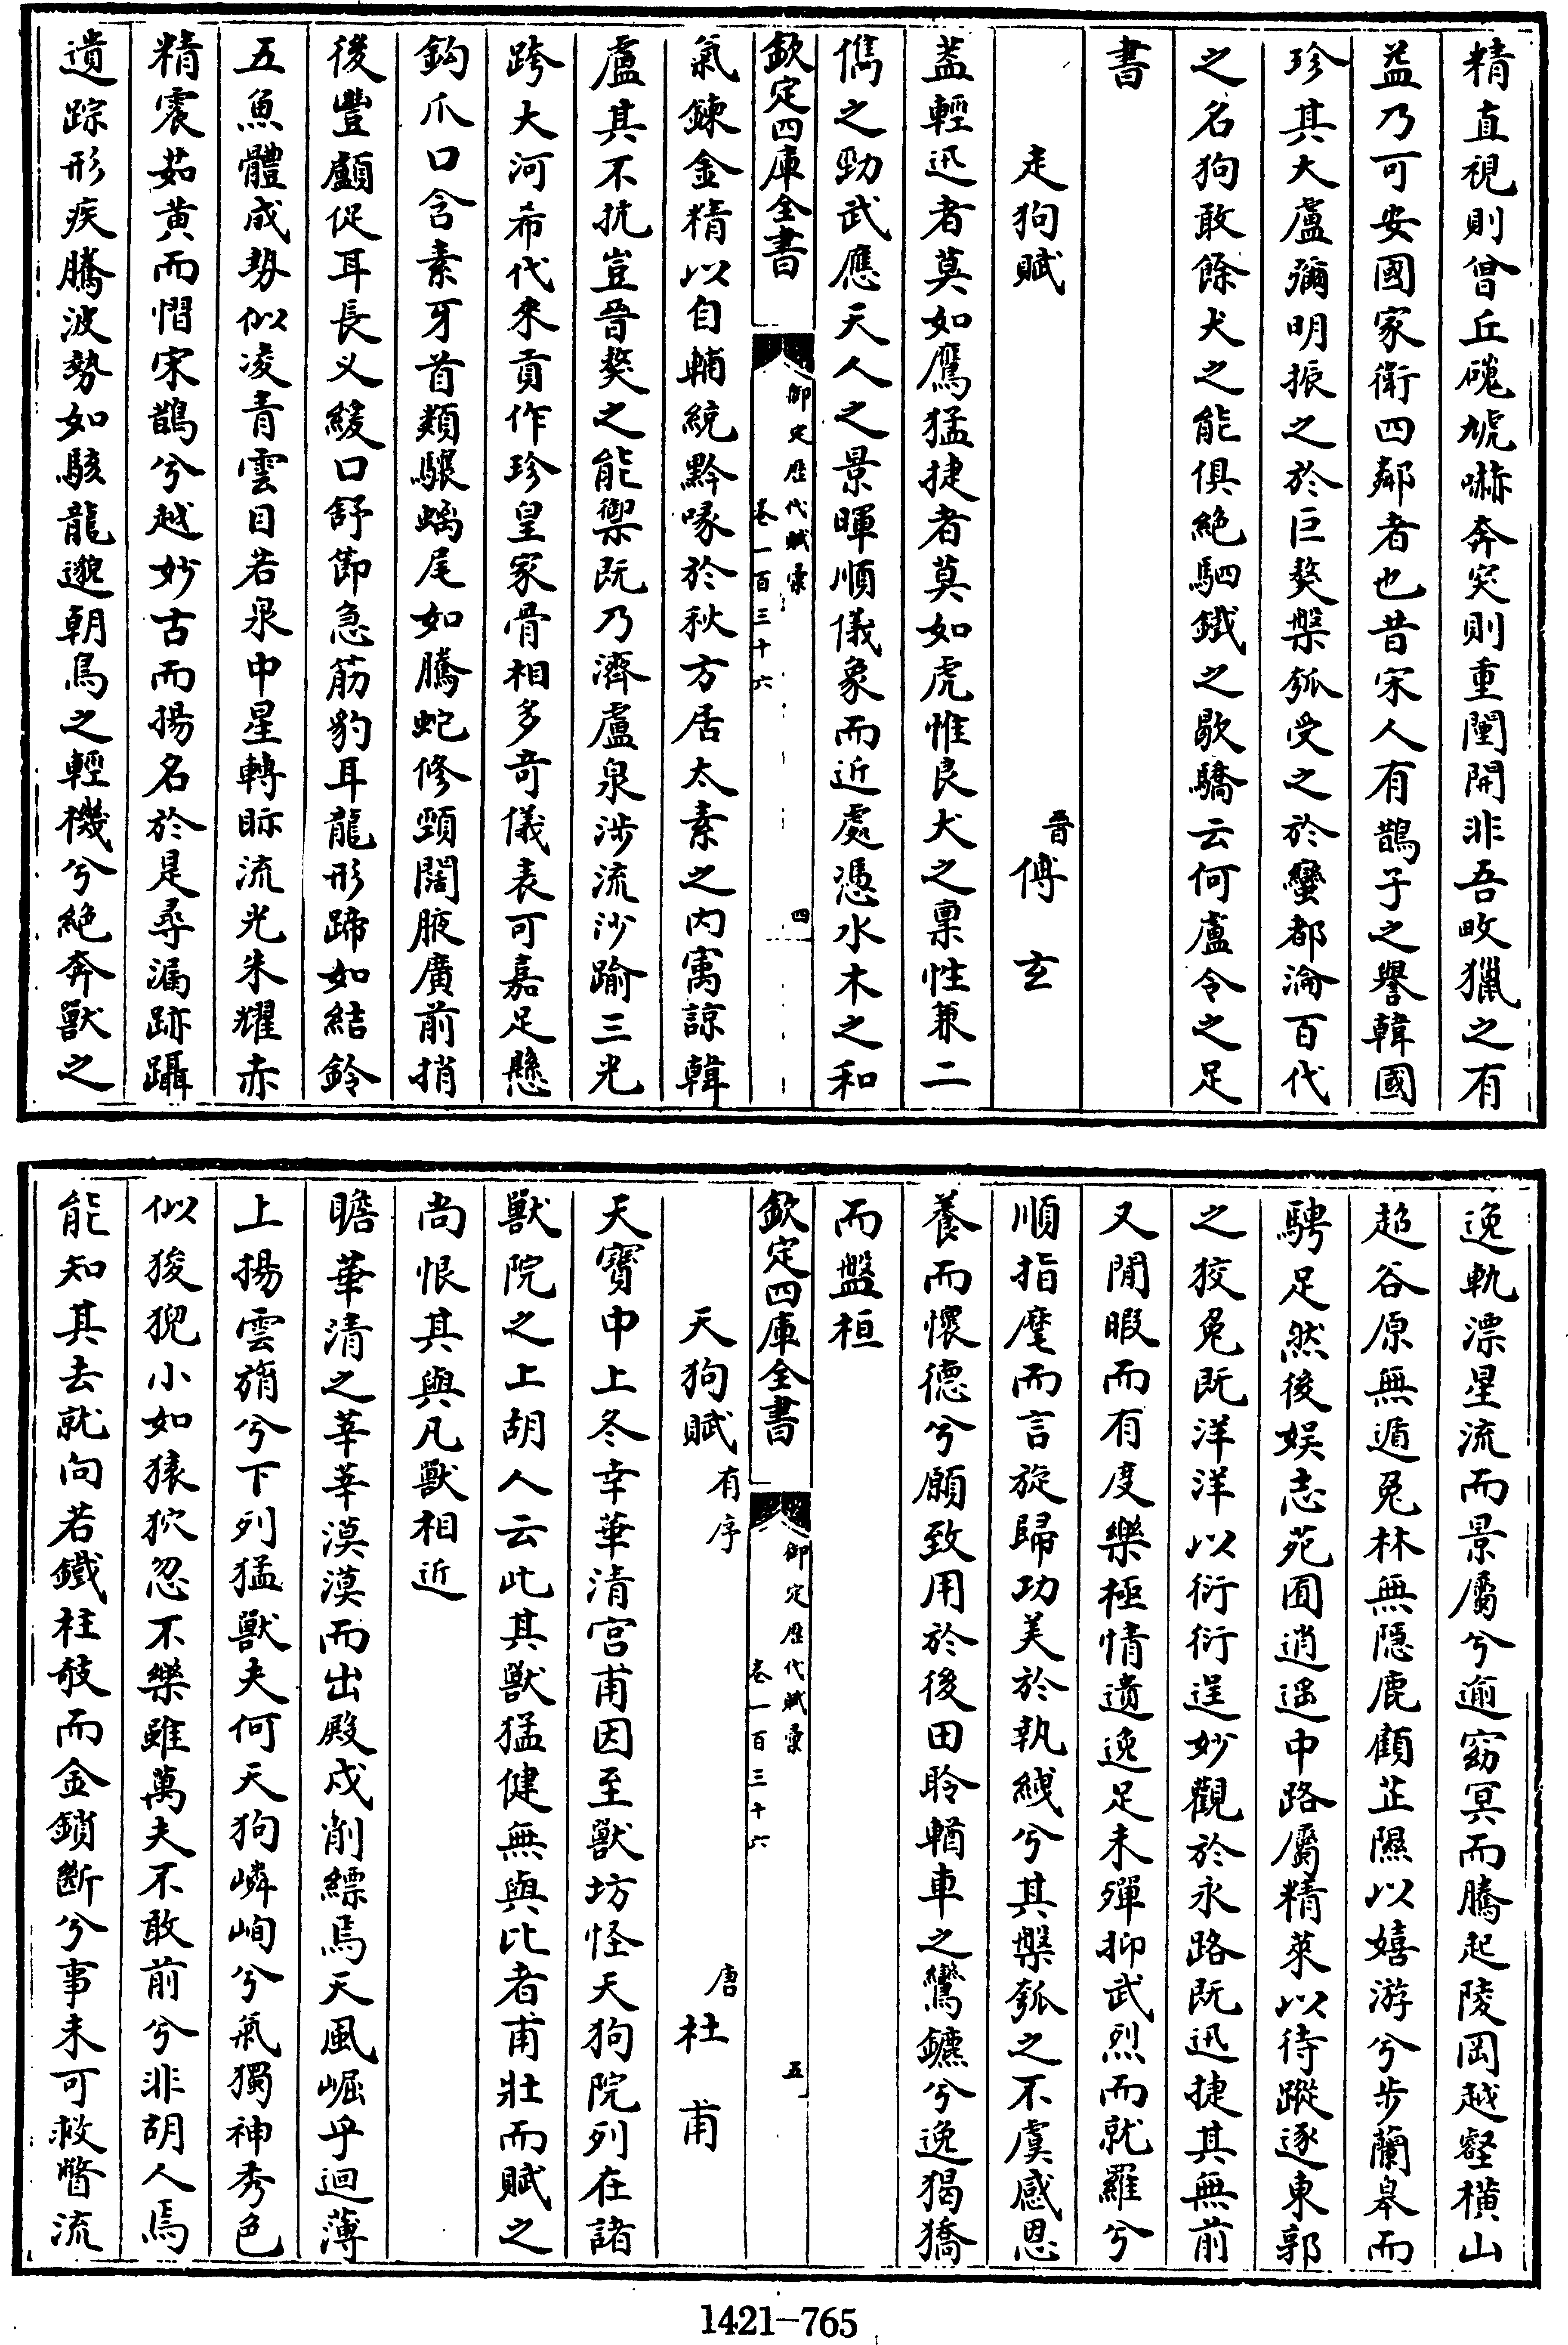 精直視則曾丘磈虓嚇奔突則重闉開非吾畋獵之有
益乃可安國家衛四鄰者也昔宋人有鵲子之譽韓國
珍其大盧彌明振之於巨獒槃瓠受之於蠻都淪百代
之名狗敢餘犬之能俱絶駟鐵之歇驕云何盧令之足
書
走狗賦 晉傅玄
蓋輕迅者莫如鷹猛捷者莫如虎惟良犬之稟性兼二
儁之勁武應天人之景暉順儀象而近處憑水木之和
欽定四庫全書 御定歴代賦彙 卷一百三十六 四
氣鍊金精以自輔統黔喙於秋方居太素之内寓諒韓
盧其不抗豈晉獒之能禦既乃濟盧泉涉流沙踰三光
跨大河希代來貢作珍皇家骨相多奇儀表可嘉足懸
鈎爪口含素牙首類驤螭尾如騰蛇修頸闊腋廣前捎
後豐顱促耳長义緩口舒節急筋豹耳龍形蹄如結鈴
五魚體成勢似凌青雲目若泉中星轉眎流光朱耀赤
精震茹黄而慴宋鵲兮越妙古而揚名於是尋漏跡躡
遺踪形疾騰波勢如駭龍邈朝烏之輕機兮絶奔獸之
逸軌漂星流而景屬兮逾窈冥而騰起陵岡越壑横山
超谷原無遁兔林無隱鹿顧芷隰以嬉游兮步蘭皋而
騁足然後娱志苑囿逍遥中路屬精萊以待蹤逐東郭
之狡兔既洋洋以衍衍逞妙觀於永路既迅捷其無前
又閒暇而有度樂極情遺逸足未殫抑武烈而就羅兮
順指麾而言旋歸功美於執紲兮其槃瓠之不虞感恩
養而懷德兮願致用於後田聆輶車之鸞鑣兮逸猲獢
而盤桓
欽定四庫全書 御定歴代賦彙 卷一百三十六 五
天狗賦有序 唐杜甫
天寶中上冬幸華清宫甫因至獸坊怪天狗院列在諸
獸院之上胡人云此其獸猛健無與比者甫壯而賦之
尚恨其與凡獸相近
瞻華清之莘莘漠漠而出殿戍削縹焉天風崛乎迴薄
上揚雲旓兮下列猛獸夫何天狗嶙峋兮氣獨神秀色
似狻猊小如猿狖忽不樂雖萬夫不敢前兮非胡人焉
能知其去就向若鐵柱攲而金鎖斷兮事未可救瞥流
1421—765